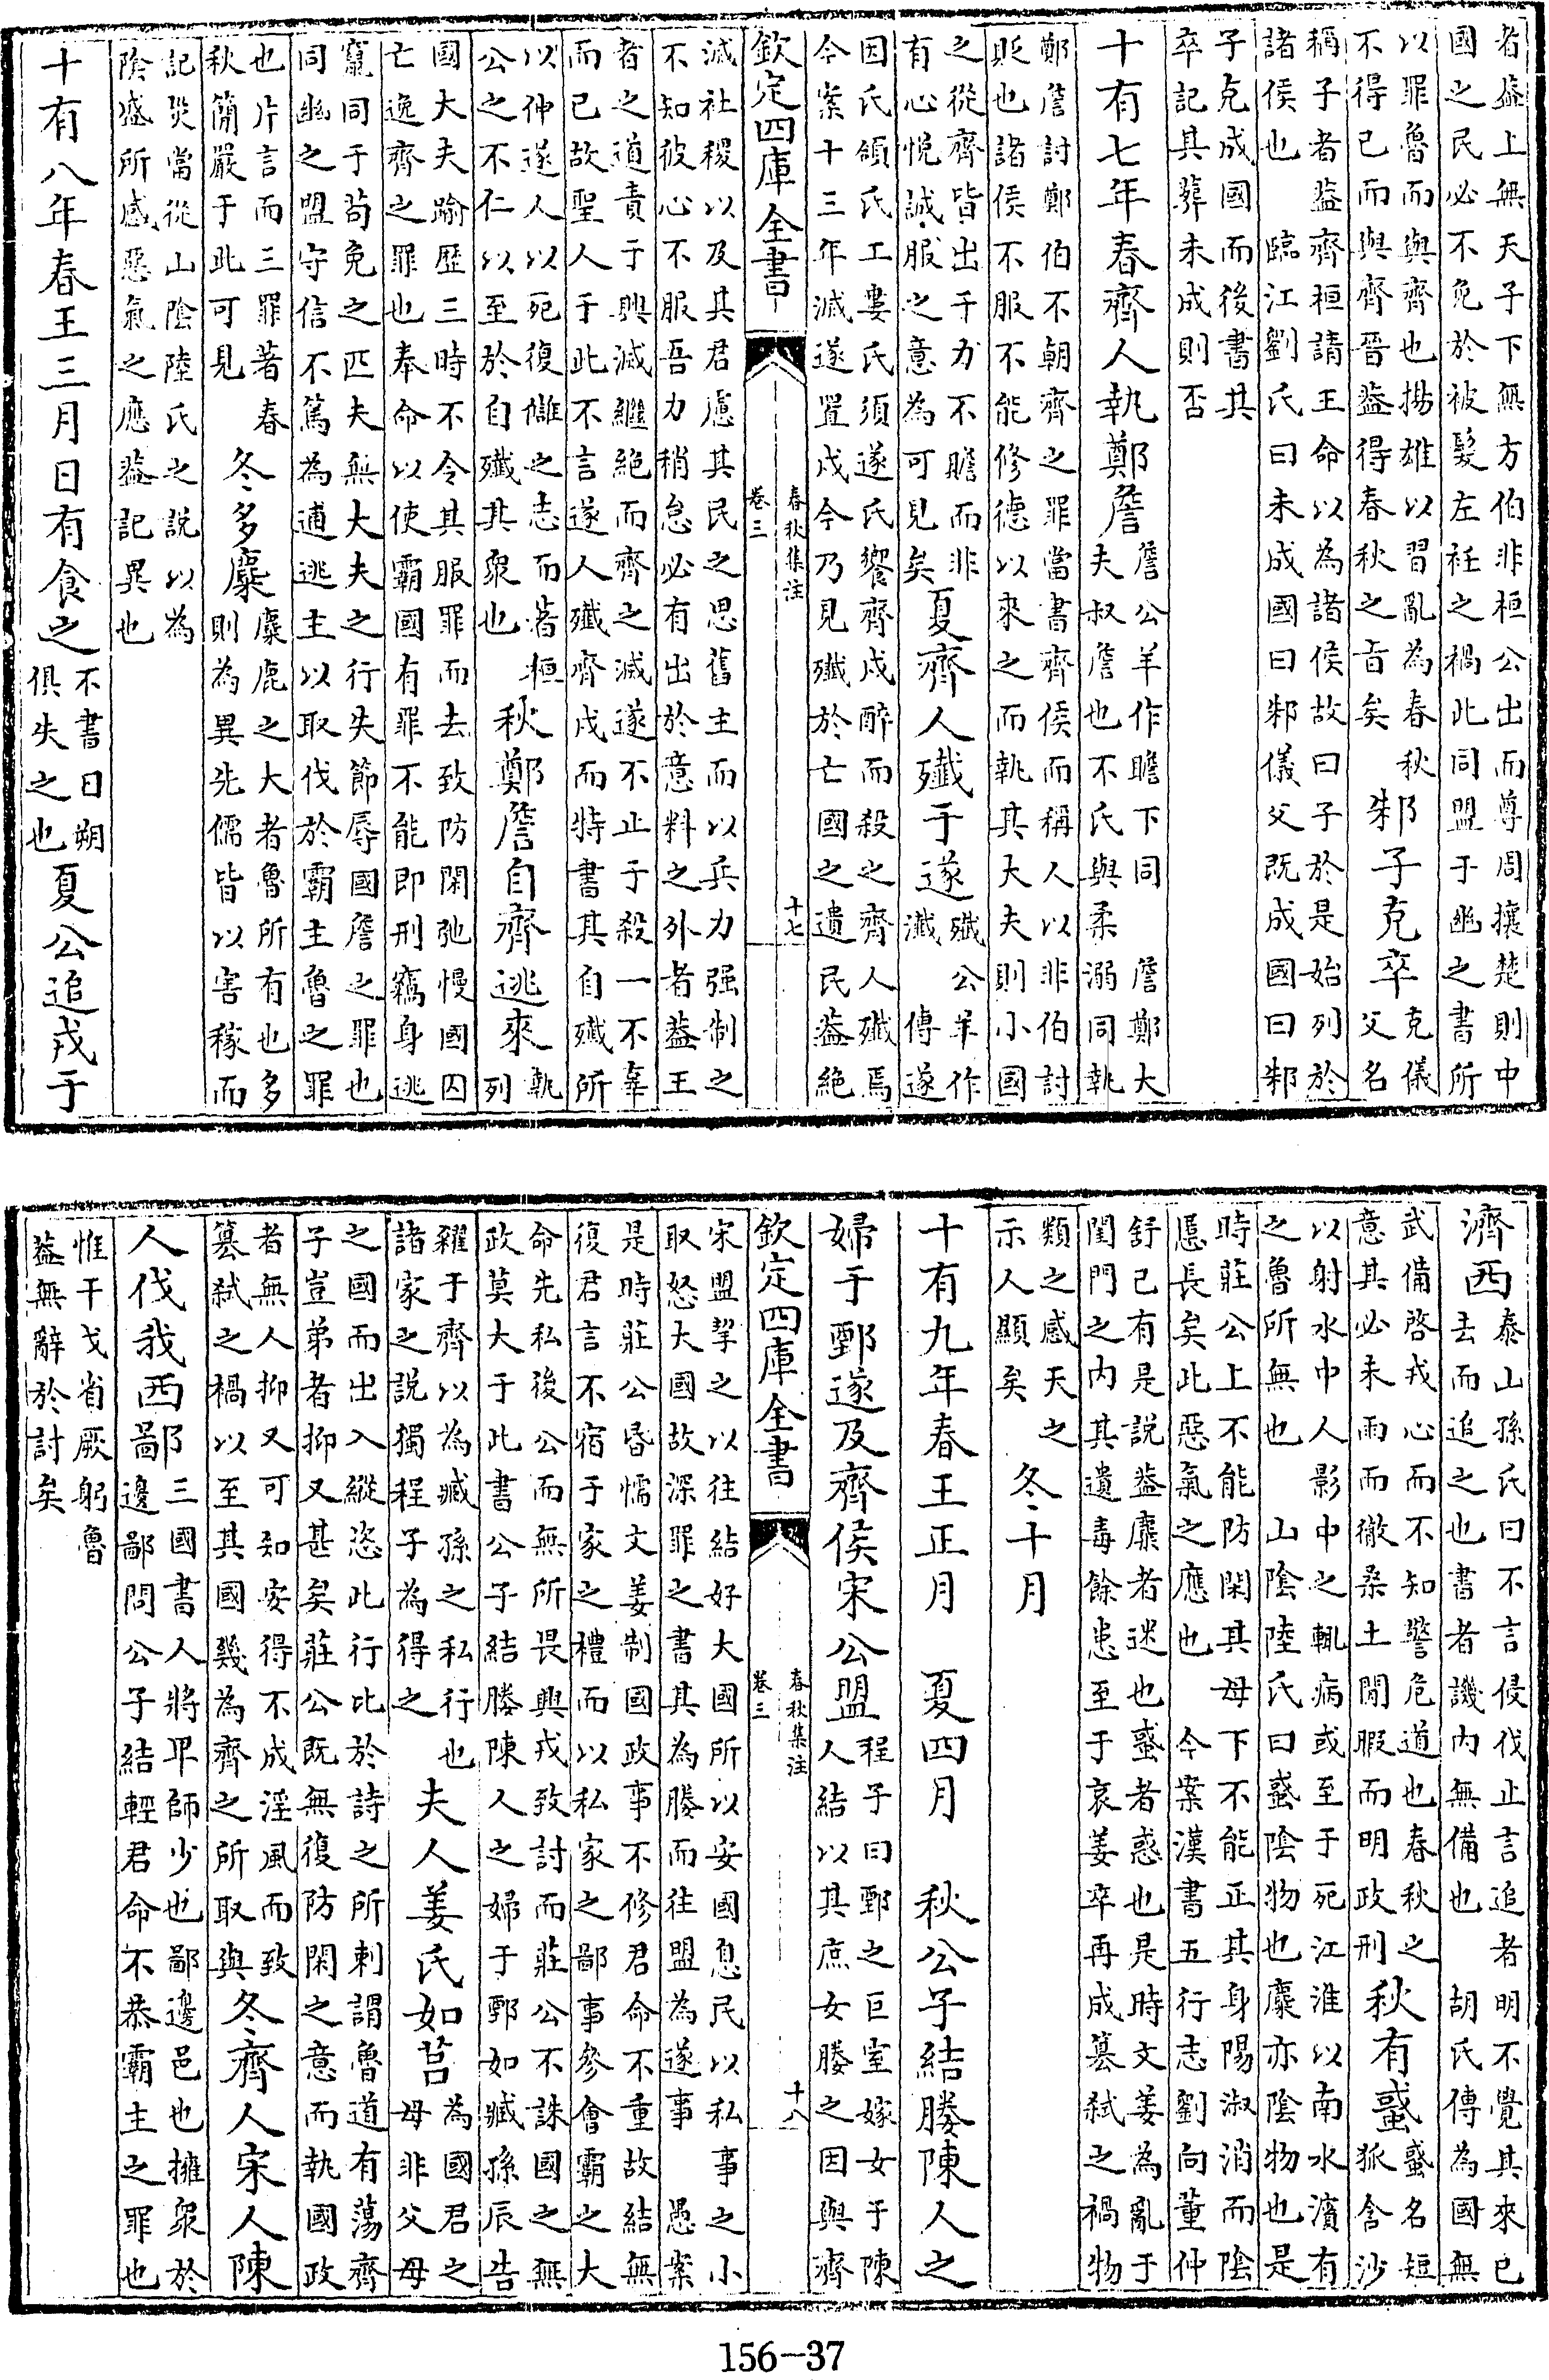 者葢上無天子下無方伯非桓公出而尊周攘楚則中
國之民必不免於被髮左衽之禍此同盟于幽之書所
以罪魯而與齊也揚雄以習亂為春秋
不得已而與齊晉葢得春秋之旨矣
邾子克卒
克儀
父名
稱子者葢齊桓請王命以為諸侯故曰子於是始列於
諸侯也 臨江劉氏曰未成國曰邾儀父既成國曰邾
子克成國而後書其
卒記其葬未成則否
十有七年春齊人執鄭詹
詹公羊作瞻下同 詹鄭大
夫叔詹也不氏與柔溺同執
鄭詹討鄭伯不朝齊之罪當書齊侯而稱人以非伯討
貶也諸侯不服不能修德以來之而執其大夫則小國
之從齊皆出于力不贍而非
有心悅誠服之意為可見矣
夏齊人殱于遂
殱公羊作
瀸 傳遂
因氏領氏工婁氏須遂氏饗齊戍醉而殺之齊人殱焉
今案十三年滅遂置戍今乃見殱於亡國之遺民葢絶
欽定四庫全書
春秋集注
卷三
十七
滅社稷以及其君慮其民之思舊主而以兵力强制之
不知彼心不服吾力稍怠必有出於意料之外者葢王
者之道責于興滅繼絶而齊之滅遂不止于殺一不辜
而已故聖人于此不言遂人殱齊戍而特書其自殱所
以伸遂人以死復讎之志而著桓
公之不仁以至於自殱其衆也
秋鄭詹自齊逃來
執
列
國大夫踰歷三時不令其服罪而去致防閑弛慢國囚
亡逸齊之罪也奉命以使霸國有罪不能即刑竊身逃
竄同于苟免之匹夫無大夫之行失節辱國詹之罪也
同幽之盟守信不篤為逋逃主以取伐於霸主魯之罪
也片言而三罪著春
秋簡嚴于此可見
冬多麋
麋鹿之大者魯所有也多
則為異先儒皆以害稼而
記災當從山陰陸氏之說以為
陰盛所感惡氣之應葢記異也
十有八年春王三月日有食之
不書日朔
俱失之也
夏公追戎于
濟西
泰山孫氏曰不言侵伐止言追者明不覺其來已
去而追之也書者譏内無備也 胡氏傳為國無
武備啓戎心而不知警危道也春秋之
意其必未雨而徹桑土閒暇而明政刑
秋有蜮
蜮名短
狐含沙
以射水中人影中之輒病或至于死江淮以南水濱有
之魯所無也 山陰陸氏曰蜮陰物也麋亦陰物也是
時莊公上不能防閑其母下不能正其身陽淑消而陰
慝長矣此惡氣之應也 今案漢書五行志劉向董仲
舒已有是說葢麋者迷也蜮者惑也是時文姜為亂于
閨門之内其遺毒餘患至于哀姜卒再成簒弑之禍物
類之感天之
示人顯矣
冬十月
十有九年春王正月 夏四月 秋公子結媵陳人之
婦于鄄遂及齊侯宋公盟
程子曰鄄之巨室嫁女于陳
人結以其庶女媵之因與齊
欽定四庫全書
春秋集注
卷三
十八
宋盟挈之以往結好大國所以安國息民以私事之小
取怒大國故深罪之書其為媵而往盟為遂事 愚案
是時莊公昏懦文姜制國政事不修君命不重故結無
復君言不宿于家之禮而以私家之鄙事參會霸之大
命先私後公而無所畏興戎致討而莊公不誅國之無
政莫大于此書公子結媵陳人之婦于鄄如臧孫辰告
糴于齊以為臧孫之私行也
諸家之說獨程子為得之
夫人姜氏如莒
為國君之
母非父母
之國而出入縱恣此行比於詩之所刺謂魯道有蕩齊
子豈弟者抑又甚矣莊公既無復防閑之意而執國政
者無人抑又可知安得不成淫風而致
簒弑之禍以至其國幾為齊之所取與
冬齊人宋人陳
人伐我西鄙
三國書人將卑師少也鄙邊邑也擁衆於
邊鄙問公子結輕君命不恭霸主之罪也
惟干戈省厥躬魯
葢無辭於討矣
156-37